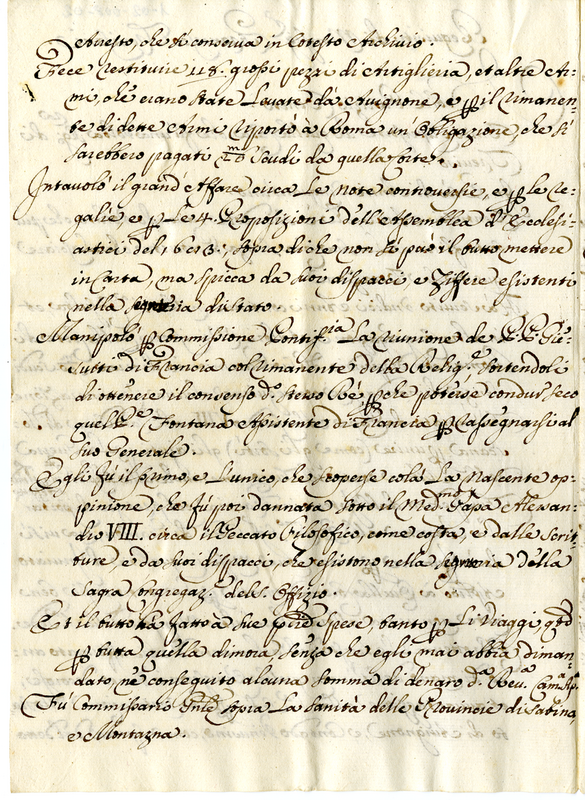 Arresto, che si conserva in Cotesto Archivio.
Fece restituire 118. grossi pezzi di Artiglieria, et altre Ar-
mi, che erano state Levate da Avignone, e p il rimanen-
te di dette Armi riportò à Roma un' Obligazione, che si
sarebbero pagati Scudi da quella Corte.
Intavolò il grand' Affare circa Le note controversie, e p le Re-
galie, e p Le 4. Proposizioni dell' Assemblea d' Ecclesi-
astici del 1683., sopra di che non si può il tutto mettere
in Carta, ma spicca da suoi dispacci e Ziffere esistenti
nella di stato
Manipolò p Commissione Pontif.ia La riunione de P.P. Gie-
suiti di Francia col rimanente della Relig.e, sortendoli
di ottenere il consenso d. stesso Rè, p che potesse condur seco
quel P.e Fontana Assistente di Francia p rassegnarsi al
suo Generale.
Egli fù il primo, e L'unico, che scoperse colà La nascente op-
pinione, che fù poi dannata sotto il Med.mo Papa Alesan-
dro VIII. circa il Peccato Filosofico, come costa, e dalle scrit-
ture, e da suoi dispacci, che esistono nella della
Sagra Congregaz. del S. Offizio.
Et il tutto hà fatto à sue Spese, tanto p Li Viaggi, q.to
p tutta quella dimora, senza che egli mai abbia diman-
dato, ne conseguito alcuna somma di denaro d.a Rev. Cam.a Ap.a
Fù Commissario Gnle sopra La Sanità delle Provincie di Sabina,
e Montagna.